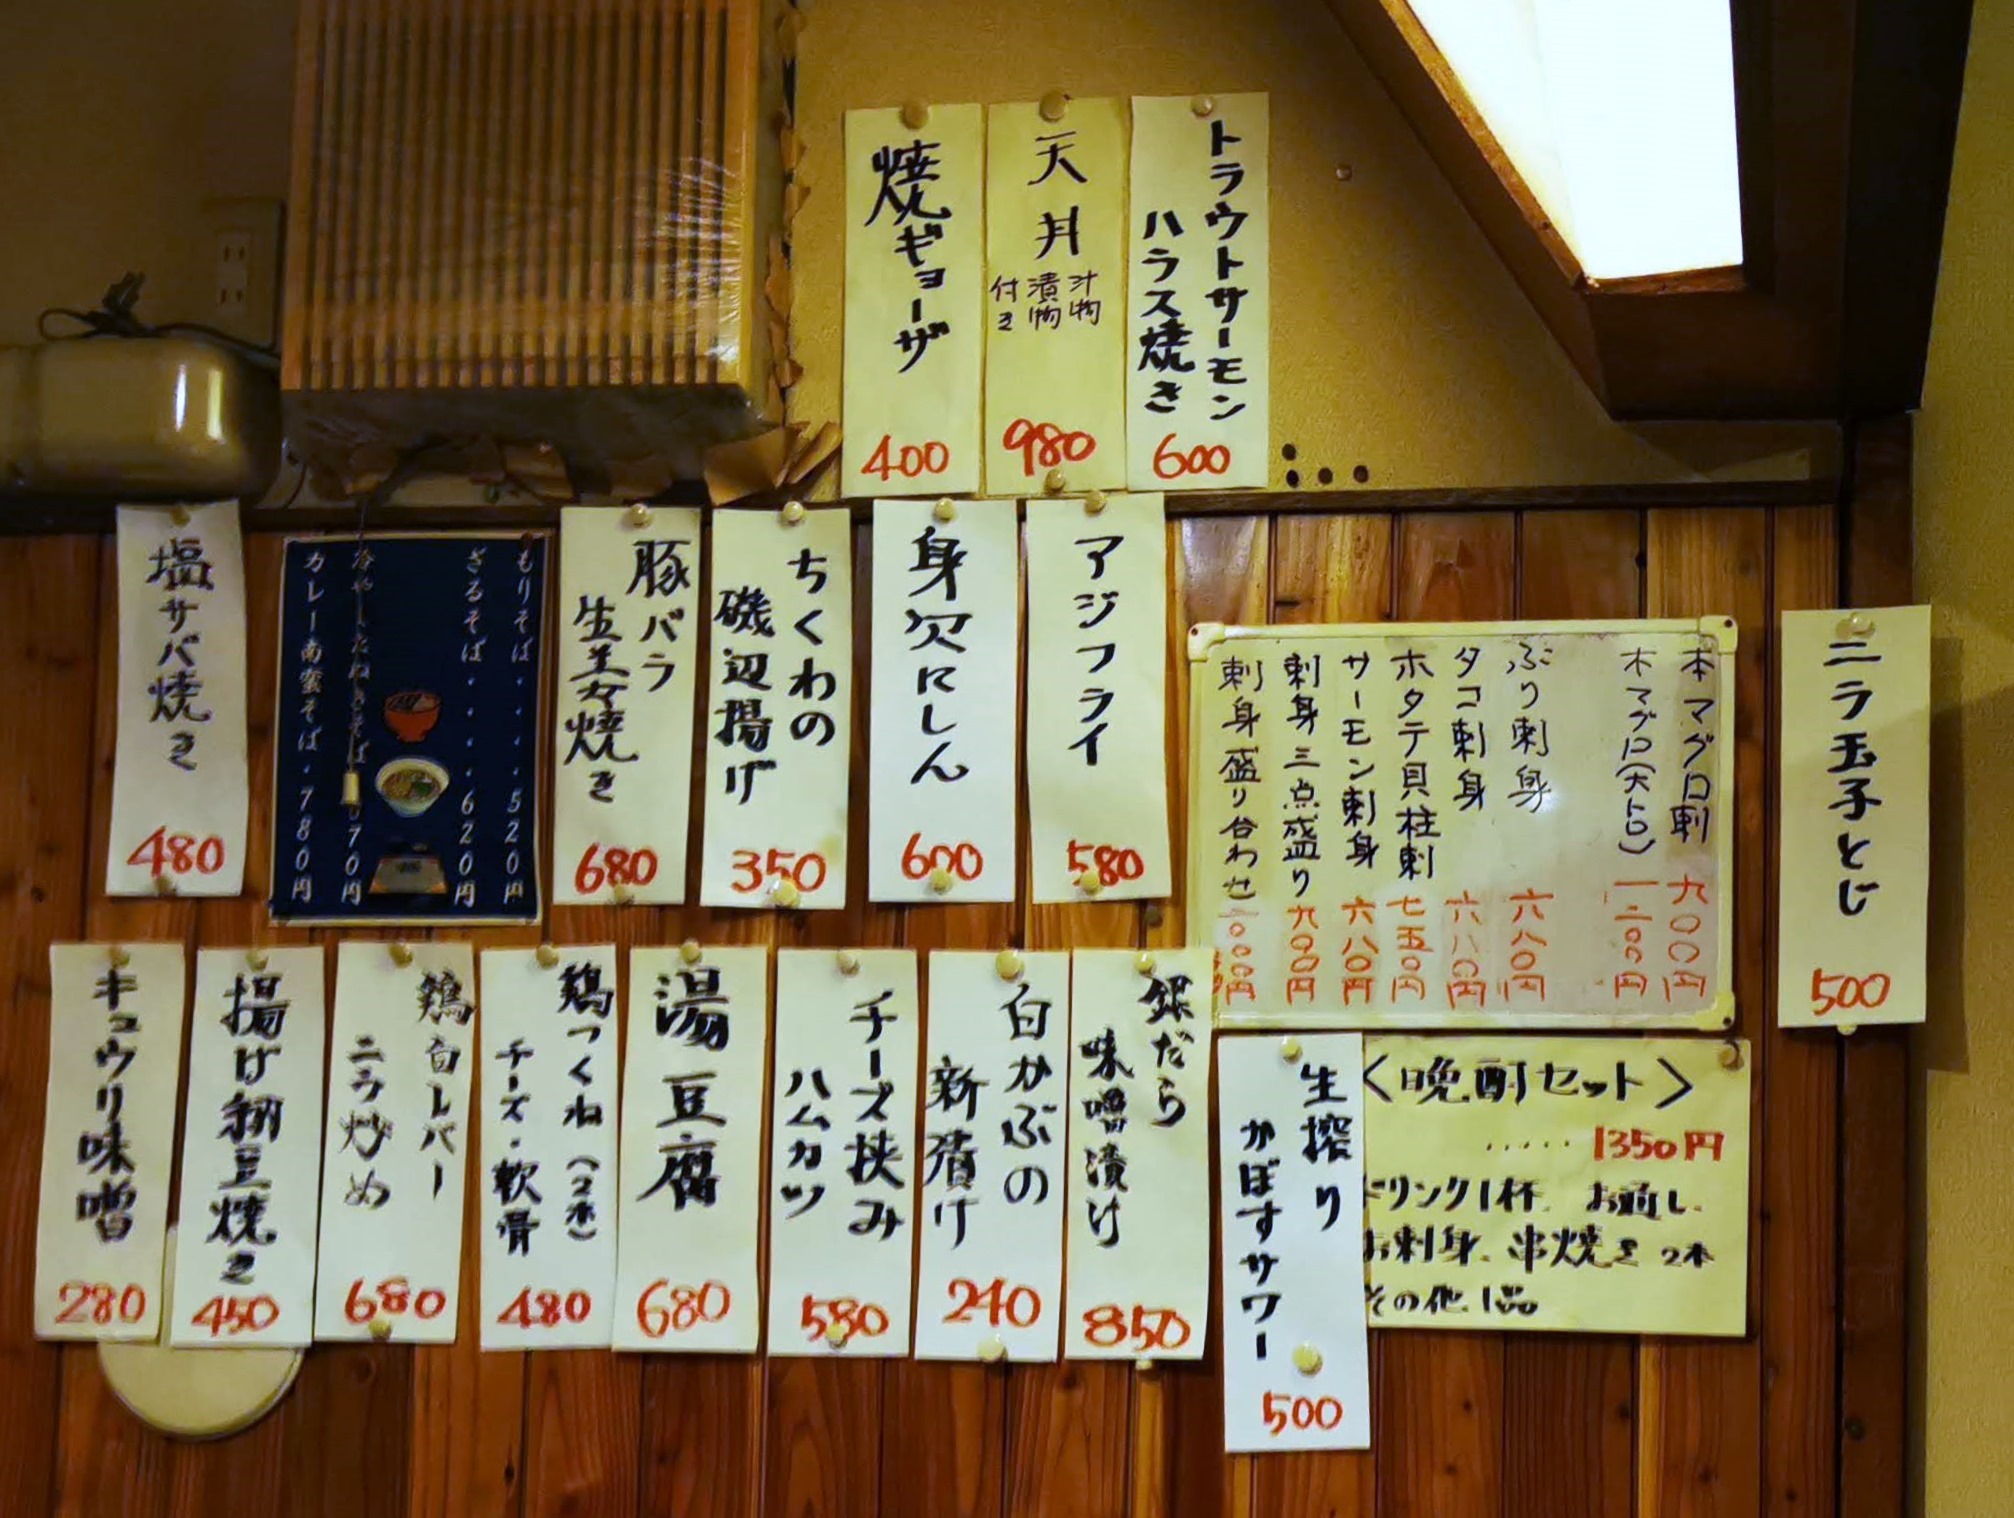 トラウトサーモン
ハラス焼き
600
天丼
汁物
漬物
付き
980
焼ギョーザ
400
ニラ玉子とじ
500
本マグロ刺 九〇〇円
本マグロ(大トロ) 一二〇〇円
ぶり刺身 六八〇円
タコ刺身 六八〇円
ホタテ貝柱刺 七五〇円
サーモン刺身 六八〇円
刺身三点盛り 九〇〇円
刺身盛り合わせ
アジフライ
580
身欠にしん
600
ちくわの
磯辺揚げ
350
豚バラ
生姜焼き
680
もりそば・・・・520円
ざるそば・・・・620円
冷やしたぬきそば 70円
カレー南蛮そば・780円
塩サバ焼き
480
<晩酌セット>
・・・・・1350円
ドリンク1杯、お通し、
お刺身、串焼き2本
その他、1品
生搾り
かぼすサワー
500
銀だら
味噌漬け
850
白かぶの
新漬け
240
チーズ挟み
ハムカツ
580
湯豆腐
680
鶏つくね(2本)
チーズ・軟骨
480
鶏白レバー
ニラ炒め
680
揚げ納豆焼き
450
キュウリ味噌
280